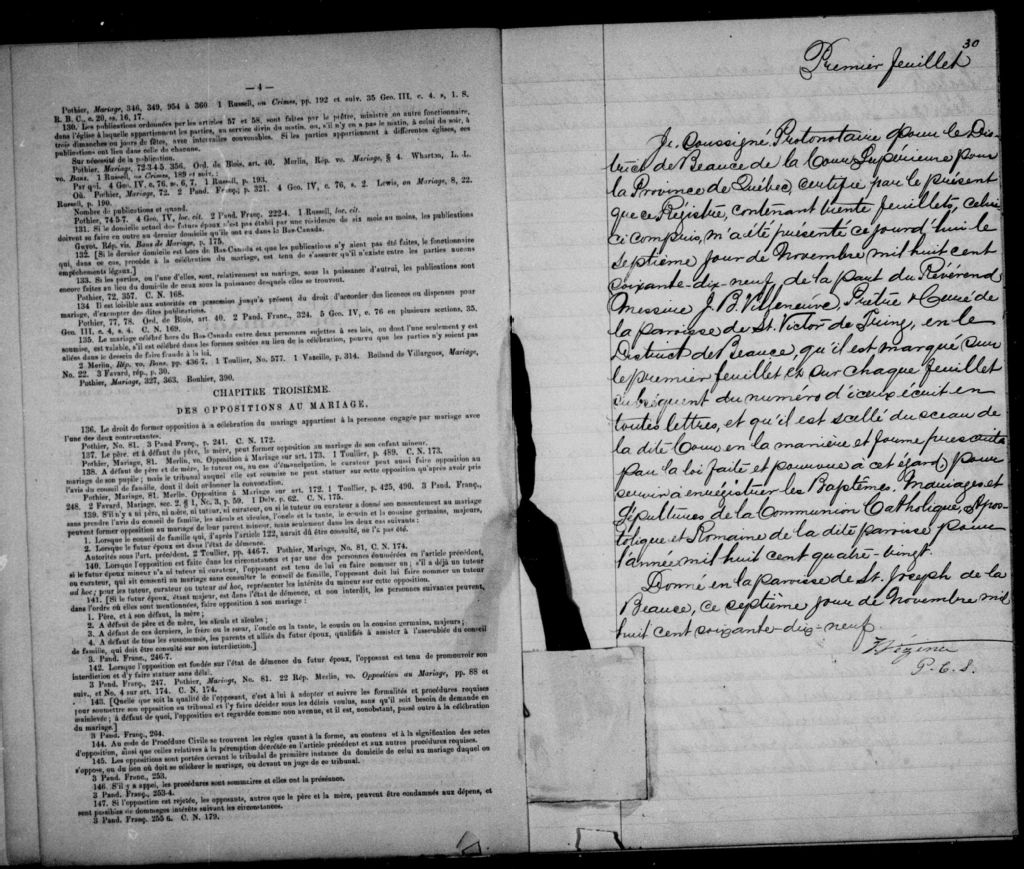 — 4 —
Pothier, Mariage, 346, 349, 954 à 360 1 Russell, on Crimes, pp. 192 et suiv. 35 Geo. III, c. 4. s, 1. S.
R. B. C., c. 20, ss. 16, 17.
130. Les publications ordonnées par les articles 57 et 58, sont faites par le prêtre, ministre ou autre fonctionnaire,
dans l'église à laquelle appartiennent les parties, au service divin du matin, ou, s'il n'y en a pas le matin, à celui du soir, à
trois dimanches ou jours de fêtes, avec intervalles convenables. Si les parties appartiennent à différentes églises, ces
publications ont lieu dans celle de chacune.
Sur nécessité de la publication.
Pothier, Mariage, 72-3-4-5. 356, Ord. de Blois, art. 40. Merlin, Rép. vo. Mariage, § 4. Wharton, L. L.
vo. Bans. 1 Russell, on Crimes, 189 et suiv.:
Par qui. 4 Geo. IV, c. 76, s. 6, 7. 1 Russell, p. 193.
Où. Pothier, Mariage, 72. 2 Pand. Franç.; p. 321. 4 Geo. IV, c. 76, s. 2. Lewis, on Mariage, 8, 22.
Russell, p. 190.
Nombre de publications et quand.
Pothier, 74-5-7. 4 Geo, IV, loc. cit. 2 Pand. Franç. 222-4. 1 Russell, loc. cit.
131. Si le domicile actuel des futurs époux n'est pas établi par une résidence de six mois au moins, les publications
doivent se faire en outre au dernier domicile qu'ils ont eu dans le Bas-Canada.
Guyot, Rép. vis. Bans de Mariage, p. 175.
132. [Si le dernier domicile est hors du Bas-Canada et que les publications n'y aient pas été faites, le fonctionnaire
qui, dans ce cas, procède à la célébration du mariage, est tenu de s'assurer qu'il n'existe entre les parties aucuns
empêchements légaux.]
133. Si les parties, ou l'une d'elles, sont, relativement au mariage, sous la puissance d'autrui, les publications sont
encore faites au lieu du domicile de ceux sous la puissance desquels elles se trouvent.
Pothier, 72, 357. C. N. 168.
134 Il est loisible aux autorités en possession jusqu'à présent du droit d'accorder des licences ou dispenses pour
mariage, d'exempter des dites publications.
Pothier, 77, 78. Ord. de Blois, art. 40. 2 Pand. Franç., 324. 5 Geo. IV, c. 76 en plusieurs sections, 35.
Geo. III, c. 4, s. 4. C. N. 169.
135. Le mariage célébré hors du Bas-Canada entre deux personnes sujettes à ses lois, ou dont l'une seulement y est
soumise, est valable, s'il est célébré dans les formes usitées au lieu de la célébration, pourvu que les parties n'y soient pas
allées dans le dessein de faire fraude à la loi.
2 Merlin, Rép. vo. Bans, pp. 436-7. 1 Toullier, No. 577. 1 Vazeille, p. 314. Rolland de Villargues, Mariage,
No. 22. 3 Favard, rép., p. 30.
Pothier, Mariage, 327, 363. Bouhier, 390.
CHAPITRE TROISIÈME.
DES OPPOSITIONS AU MARIAGE.
136. Le droit de former opposition à la célébration du mariage appartient à la personne engagée par mariage avec
l'une des deux contractantes.
Pothier, No. 81. 3 Pand Franç., p. 241. C. N. 172.
137. Le père, et à défaut du père, la mère, peut former opposition au mariage de son enfant mineur.
Pothier, Mariage, 81. Merlin, vo. Opposition à Mariage sur art. 173. 1 Toullier, p. 489. C. N. 173.
138. A défaut de père et de mère, le tuteur ou, au cas d'émancipation, le curateur peut aussi faire opposition au
mariage de son pupille; mais le tribunal auquel elle est soumise ne peut statuer sur cette opposition qu'après avoir pris
l'avis du conseil de famille, dont il doit ordonner la convocation.
Pothier, Mariage, 81. Merlin. Opposition à Mariage sur art. 172. 1 Toullier, p. 425, 490. 3 Pand. Franç.,
248. 2 Favard, Mariage, sec. 2, § 1, No. 3, p. 59. 1 Delv. p. 62. C. N. 175.
139. S'il n'y a ni père, ni mère, ni tuteur, ni curateur, ou si le tuteur ou curateur a donné son consentement au mariage
sans prendre l'avis du conseil de famille, les aïeuls et aïeules, l'oncle et la tante, le cousin et la cousine germains, majeurs,
peuvent former opposition au mariage de leur parent mineur, mais seulement dans les deux cas suivants:
1. Lorsque le conseil de famille qui, d'après l'article 122, aurait dû être consulté, ne l'a pas été.
2. Lorsque le futur époux est dans l'état de démence.
Autorités sous l'art. précédent. 2 Toullier, pp. 446-7. Pothier, Mariage, No. 81, C. N. 174.
140. Lorsque opposition est faite dans les circonstances et par une des personnes énumérées en l'article précédent,
si le futur époux mineur n'a ni tuteur ni curateur, l'opposant est tenu de lui en faire nommer un; s'il a déjà un tuteur
ou curateur, qui ait consenti au mariage sans consulter le conseil de famille, l'opposant doit lui faire nommer un tuteur
ad hoc; pour les tuteur, curateur ou tuteur ad hoc, représenter les intérêts du mineur sur cette opposition.
141. [Si le futur époux, étant majeur, est dans l'état de démence, et non interdit, les personnes suivantes peuvent,
dans l'ordre où elles sont mentionnées, faire opposition à son mariage:
1. Père, et à son défaut, la mère;
2. A défaut de père et de mère, les aïeuls et aïeules;
3. A défaut de ces derniers, le frère ou la sœur, l'oncle ou la tante, le cousin ou la cousine germains, majeurs;
4. A défaut de tous les susnommés, les parents et alliés du futur époux, qualifiés à assister à l'assemblée du conseil
de famille, qui doit être consulté sur son interdiction.]
3. Pand. Franç., 246-7.
142. Lorsque l'opposition est fondée sur l'état de démence du futur époux, l'opposant est tenu de promouvoir son
interdiction et d'y faire statuer sans délai.
3 Pand. Franç., 247. Pothier, Mariage, No. 81. 22 Rép. Merlin, vo. Opposition au Mariage, pp. 88 et
suiv., et No. 4 sur art. 174. C. N. 174.
143. [Quelle que soit la qualité de l'opposant, c'est à lui à adopter et suivre les formalités et procédures requises
pour soumettre son opposition au tribunal et l'y faire décider sous les délais voulus, sans qu'il soit besoin de demande en
mainlevée; à défaut de quoi, l'opposition est regardée comme non avenue, et il est, nonobstant, passé outre à la célébration
du mariage.]
3 Pand. Franç., 264.
144. Au code de Procédure Civile se trouvent les règles quant à la forme, au contenu et à la signification des actes
d'opposition, ainsi que celles relatives à la péremption décrétée en l'article précédent et aux autres procédures requises.
145. Les oppositions sont portées devant le tribunal de première instance du domicile de celui au mariage duquel on
s'oppose, ou du lieu où doit se célébrer le mariage, ou devant un juge de ce tribunal.
3 Pand. Franc., 253.
146. S'il y a appel, les procédures sont sommaires et elles ont la préséance.
3 Pand. Franç., 253-4.
147. Si l'opposition est rejetée, les opposants, autres que le père et la mère, peuvent être condamnés aux dépens, et
sont passibles de dommages intérêts suivant les circonstances.
3 Pand. Franç. 255 6. C. N. 179.
30
Premier feuillet
Je, Soussigné, Protonotaire pour le Dis-
trict de Beauce de la Cour Supérieure pour
la Province de Québec, certifie par le présent
que ce Registre, contenant trente feuillets, celui-
ci compris, m'a été présenté ce jourd'hui le
septième jour de Novembre mil huit cent
soixante-dix-neuf de la part du Révérend
Messire J. B. Villeneuve, Prêtre & Curé de
la paroisse de St. Victor de Tring, en le
District de Beauce, qu'il est marqué sur
le premier feuillet et sur chaque feuillet
subséquent du numéro d'iceux écrit en
toutes lettres, et qu'il est scellé du sceau de
la dite Cour en la manière et forme prescrite
par la loi faite et pourvue à cet égard, pour
servir à enrégistrer les Baptêmes, Mariages et
Sépultures de la Communion Catholique, Apos-
tolique et Romaine de la dite paroisse, pour
l'année mil huit cent quatre-vingt.
Donné en la paroisse de St. Joseph de la
Beauce, ce septième jour de Novembre mil
huit cent soixante-dix-neuf.
Vézina
P. C. S.